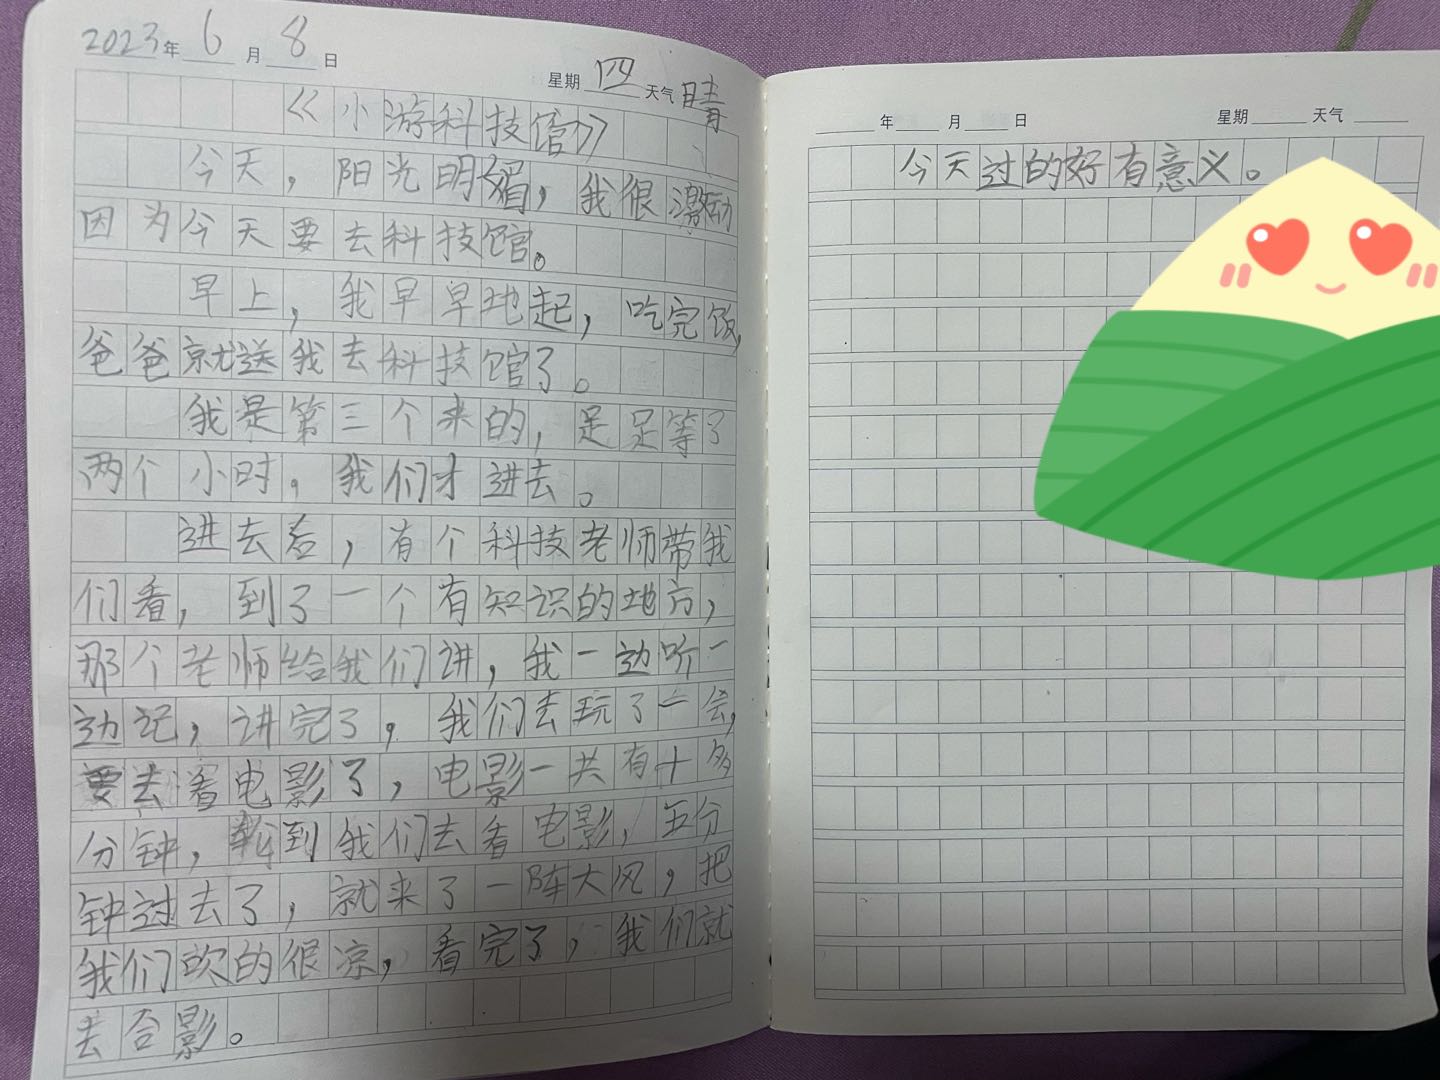 2023年 6 月 8 日 星期 四 天气 晴
《小游科技馆》
今天，阳光明媚，我很激动
因为今天要去科技馆。
早上，我早早地起，吃完饭，
爸爸就送我去科技馆了。
我是第三个来的，足足等了
两个小时。我们才进去。
进去后，有个科技老师带我
们看，到了一个有知识的地方，
那个老师给我们讲，我一边听一
边记，讲完了，我们去玩了一会，
要去看电影了，电影一共有十多
分钟，轮到我们去看电影，五分
钟过去了，就来了一阵大风，把
我们吹的很凉，看完了，我们就
去合影。
年 月 日 星期 天气
今天过的好有意义。